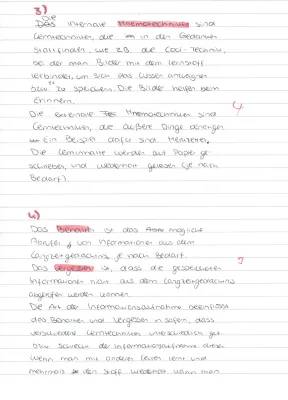 3)
Die
Das internale Mnemotechniken sind
Lerntechniken, die in den Gedanken
stattfinden, wie z.B. die Loci-Technik,
bei der man Bilder mit dem Lernstoff
verbindet, um sich das Wissen anzueignen
bzw. zu speichern. Die Bilder helfen beim
Erinnern.
Die externale Mnemotechniken sind
Lerntechniken, die äußere Dinge
Ein Beispiel dafür sind Merkzettel,
Die Lerninhalte werden auf Papier ge-
schrieben, und wiederholt gelesen (je nach
Bedarf).
4)
Das Behalten ist das mögliche
Abrufen von Informationen aus dem
Langzeitgedächtnis je nach Bedarf.
Das Vergessen ist, dass die gespeicherten
Informationen nicht aus dem Langzeitgedächtnis
abgerufen werden können.
Die Art der Informationsaufnahme beeinflusst
das Behalten und Vergessen in sofern, dass
verschiedene Lerntechniken unterschiedlich gut
bzw. schlecht der Informationsaufnahme dienen.
Wenn man mit anderen Leuten lernt und
mehrmals den Stoff wiederholt kann man